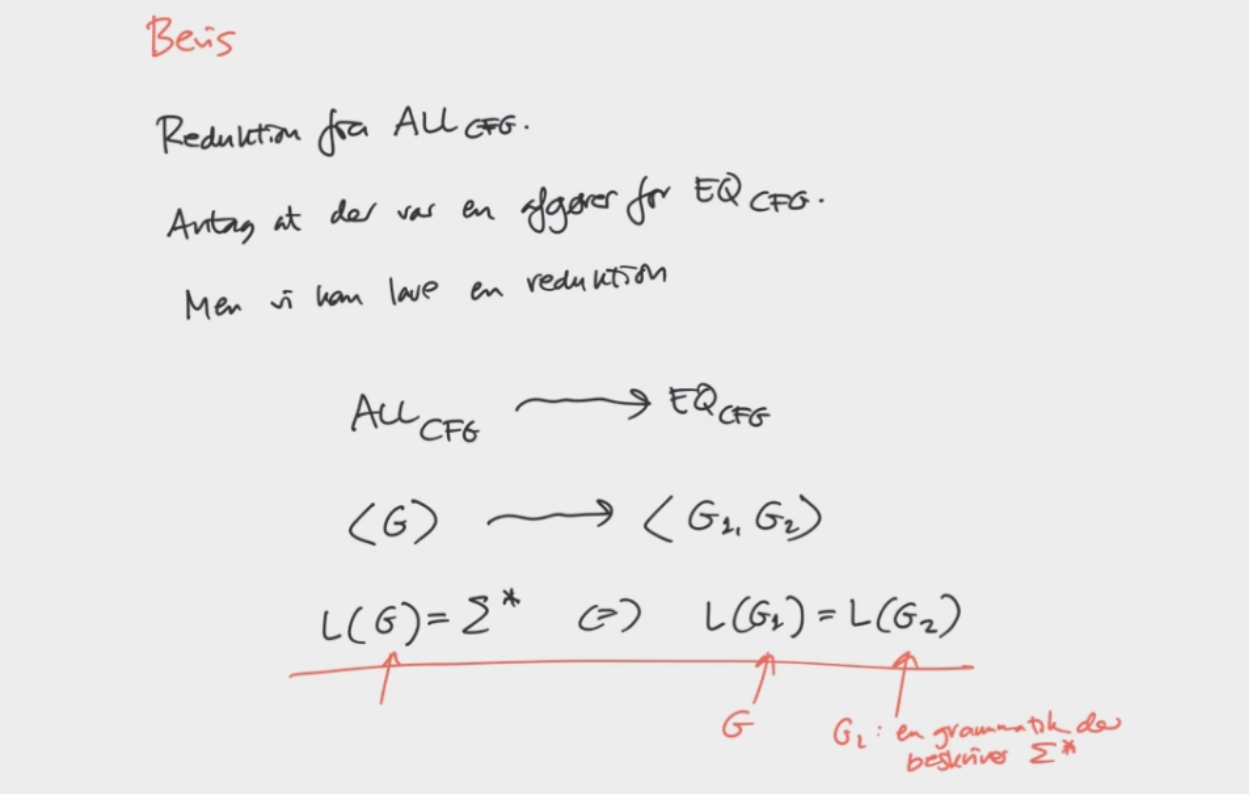 Bevis
Reduktion fra ALL_CFG.
Antag at der var en afgører for EQ_CFG.
Men vi kan lave en reduktion
ALL_CFG → EQ_CFG
⟨G⟩ → ⟨G₁, G₂⟩
L(G) = Σ* ⇔ L(G₁) = L(G₂)
G G₂: en grammatik der
beskriver Σ*